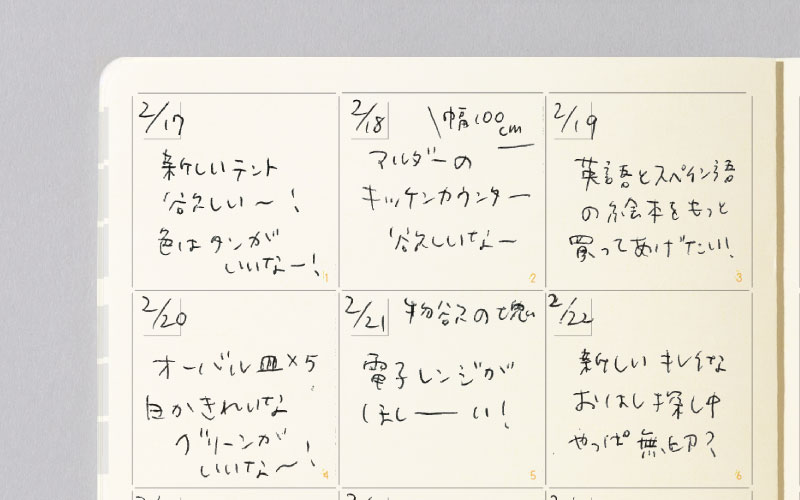 2/17
新しいテント
欲しい〜!
色はタンが
いいなー!
1
2/18
\幅100cm
マルダーの
キッチンカウンター
欲しいなー
2
2/19
英語とスペイン語
の絵本をもっと
買ってあげたい!
3
2/20
オーバル皿×5
白かきれいな
グリーンが
いいな〜!
4
2/21 物欲の塊
電子レンジが
ほしーーい!
5
2/22
新しいキレイな
おはし探し中
やっぱ無印?
6